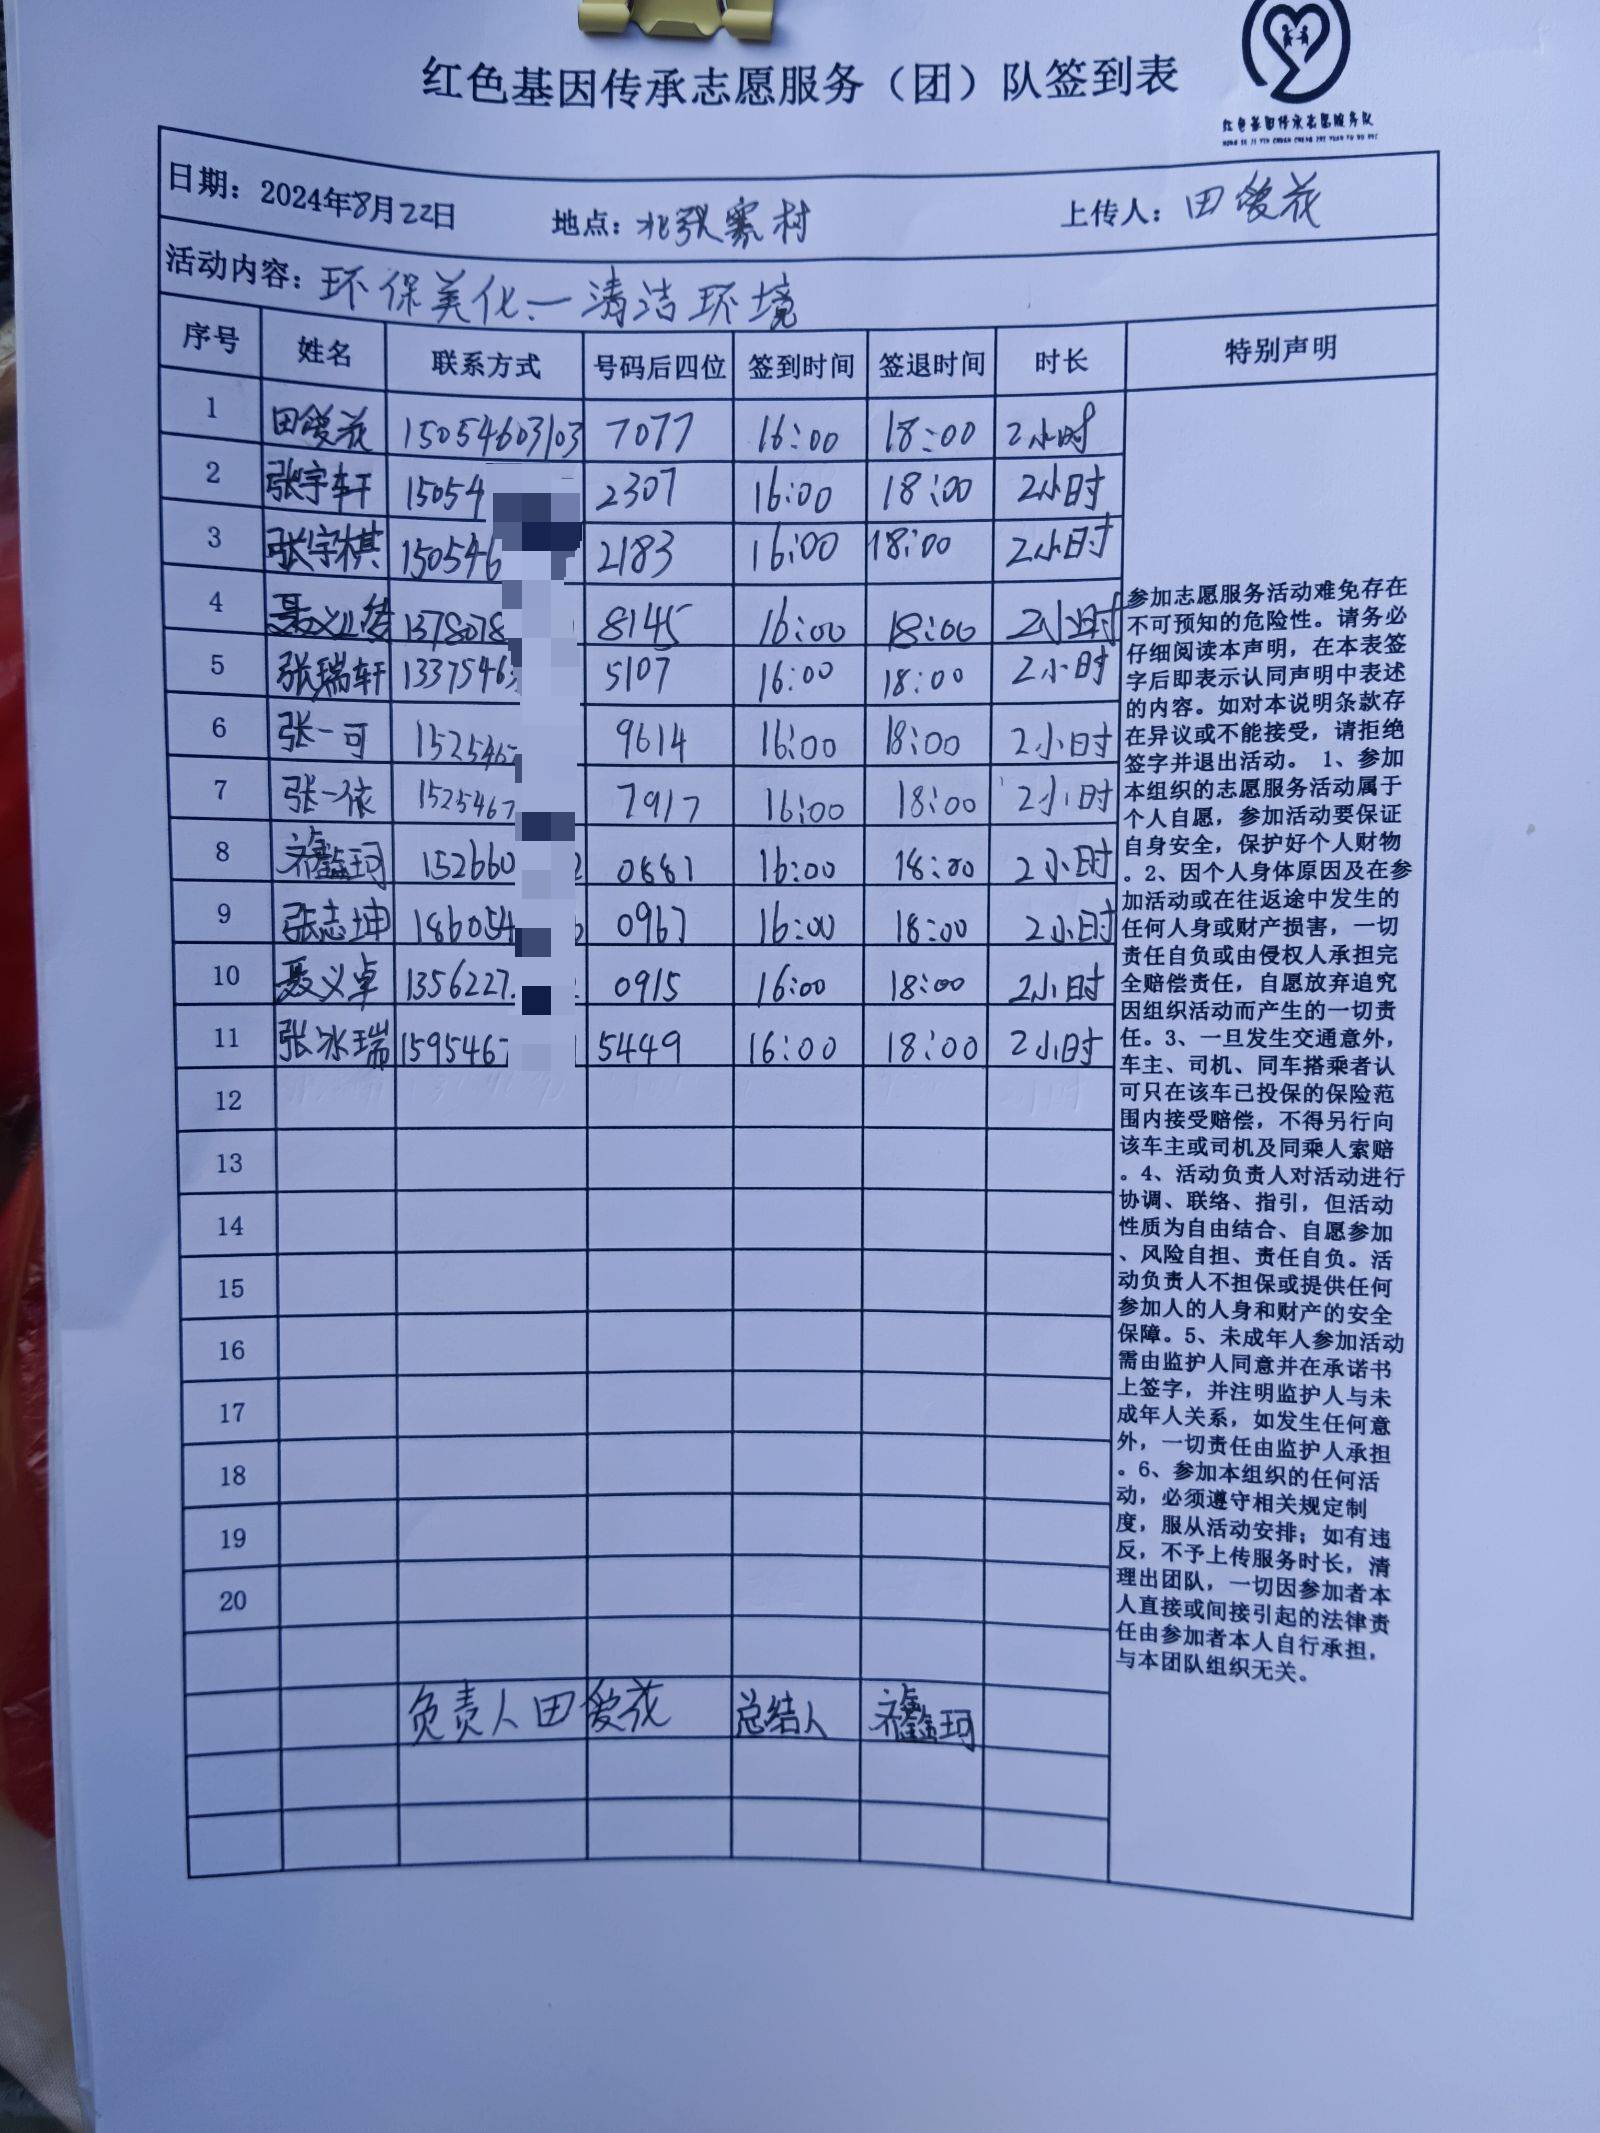 红色基因传承志愿服务（团）队签到表
红色基因传承志愿服务队
HONG SE JI YIN CHUAN CHENG ZHI YUAN FU WU DUI
日期：2024年8月22日 地点：北张寨村 上传人：田爱花
活动内容：环保美化—清洁环境
序号 姓名 联系方式 号码后四位 签到时间 签退时间 时长 特别声明
1 田爱花 15054603103 7077 16:00 18:00 2小时
2 张宇轩 15054 2307 16:00 18:00 2小时
3 张宇棋 150546 2183 16:00 18:00 2小时
4 聂义 1378078 8145 16:00 18:00 2小时
5 张瑞轩 1337546 5107 16:00 18:00 2小时
6 张一可 1525467 9614 16:00 18:00 2小时
7 张一依 1525467 7917 16:00 18:00 2小时
8 齐鑫珂 152660 0881 16:00 18:00 2小时
9 张志坤 186054 0967 16:00 18:00 2小时
10 聂义卓 1356227 0915 16:00 18:00 2小时
11 张冰瑞 1595467 5449 16:00 18:00 2小时
12
13
14
15
16
17
18
19
20
负责人 田爱花 总结人 齐鑫珂
参加志愿服务活动难免存在
不可预知的危险性。请务必
仔细阅读本声明，在本表签
字后即表示认同声明中表述
的内容。如对本说明条款存
在异议或不能接受，请拒绝
签字并退出活动。 1、参加
本组织的志愿服务活动属于
个人自愿，参加活动要保证
自身安全，保护好个人财物
。2、因个人身体原因及在参
加活动或在往返途中发生的
任何人身或财产损害，一切
责任自负或由侵权人承担完
全赔偿责任，自愿放弃追究
因组织活动而产生的一切责
任。3、一旦发生交通意外，
车主、司机、同车搭乘者认
可只在该车已投保的保险范
围内接受赔偿，不得另行向
该车主或司机及同乘人索赔
。4、活动负责人对活动进行
协调、联络、指引，但活动
性质为自由结合、自愿参加
、风险自担、责任自负。活
动负责人不担保或提供任何
参加人的人身和财产的安全
保障。5、未成年人参加活动
需由监护人同意并在承诺书
上签字，并注明监护人与未
成年人关系，如发生任何意
外，一切责任由监护人承担
。6、参加本组织的任何活
动，必须遵守相关规定制
度，服从活动安排；如有违
反，不予上传服务时长，清
理出团队，一切因参加者本
人直接或间接引起的法律责
任由参加者本人自行承担，
与本团队组织无关。